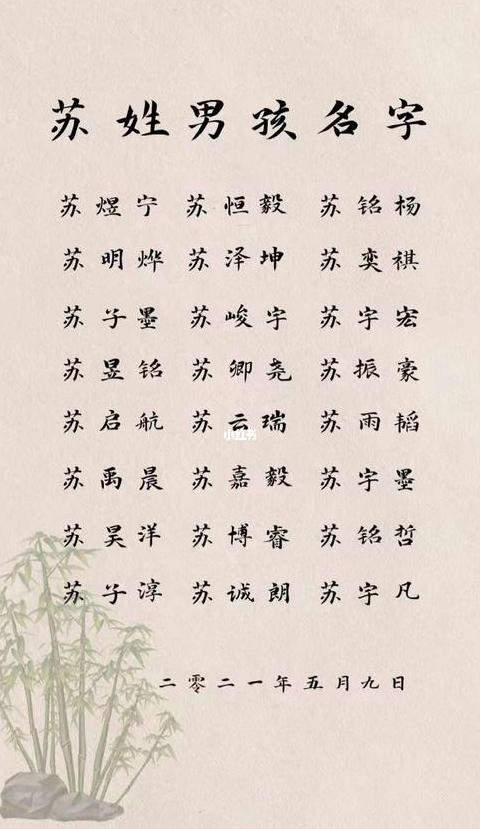 苏姓男孩名字
苏煜宁 苏恒毅 苏铭杨
苏明烨 苏泽坤 苏奕祺
苏子墨 苏峻宇 苏宇宏
苏昱铭 苏卿尧 苏振豪
苏启航 苏云瑞 苏雨韬
小红书
苏禹晨 苏嘉毅 苏宇墨
苏昊洋 苏博睿 苏铭哲
苏子淳 苏诚朗 苏宇凡
二零二一年五月九日